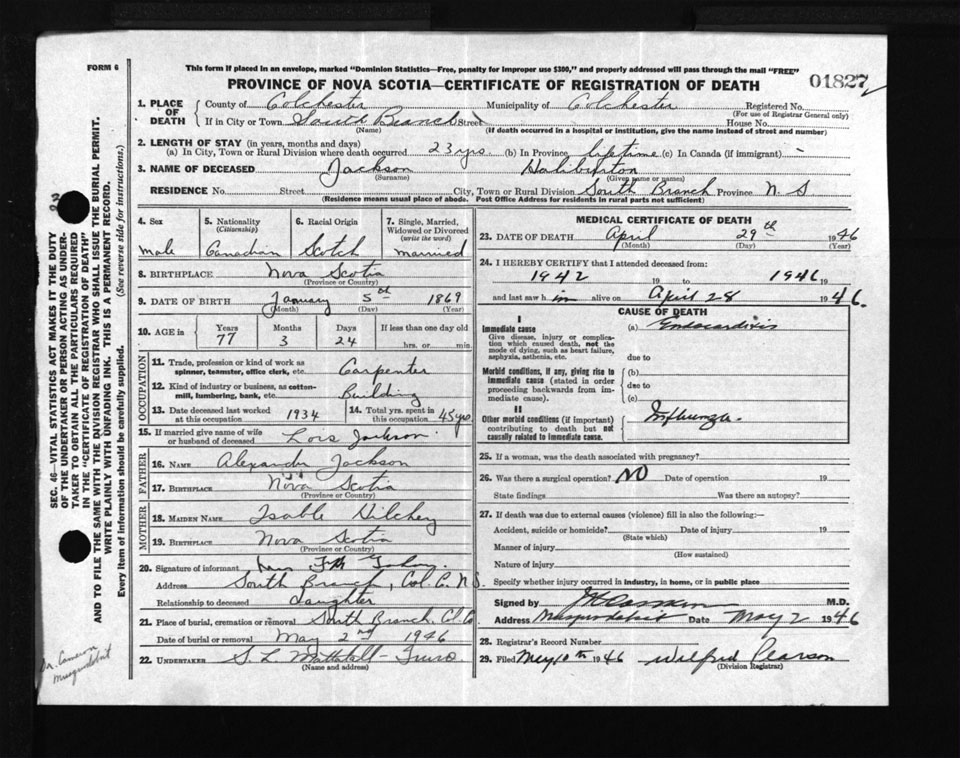 FORM 6
This form if placed in an envelope, marked "Dominion Statistics—Free, penalty for improper use $300," and properly addressed will pass through the mail "FREE"
PROVINCE OF NOVA SCOTIA—CERTIFICATE OF REGISTRATION OF DEATH
01827
1. PLACE OF DEATH
County of Colchester Municipality of Colchester Registered No.
(For use of Registrar General only)
If in City or Town South Branch Street House No.
(Name) (If death occurred in a hospital or institution, give the name instead of street and number)
2. LENGTH OF STAY (in years, months and days)
(a) In City, Town or Rural Division where death occurred 23 yrs. (b) In Province lifetime (c) In Canada (if immigrant) -
3. NAME OF DECEASED Jackson Haliburton
(Surname) (Given name or names)
RESIDENCE No. Street City, Town or Rural Division South Branch Province N. S
(Residence means usual place of abode. Post Office Address for residents in rural parts not sufficient)
4. Sex 5. Nationality (Citizenship) 6. Racial Origin 7. Single, Married, Widowed or Divorced (write the word)
male Canadian Scotch married
8. BIRTHPLACE Nova Scotia
(Province or Country)
9. DATE OF BIRTH January 5th 1869
(Month) (Day) (Year)
10. AGE in Years Months Days If less than one day old
77 3 24 hrs. or min.
OCCUPATION
11. Trade, profession or kind of work as spinner, teamster, office clerk, etc. Carpenter
12. Kind of industry or business, as cotton-mill, lumbering, bank, etc. Building
13. Date deceased last worked at this occupation 1934 14. Total yrs. spent in this occupation 45 yrs.
15. If married give name of wife or husband of deceased Lois Jackson
FATHER
16. NAME Alexander Jackson
17. BIRTHPLACE Nova Scotia
(Province or Country)
MOTHER
18. MAIDEN NAME Isable Hilchey
19. BIRTHPLACE Nova Scotia
(Province or Country)
20. Signature of informant
Address South Branch, Col. Co. N.S.
Relationship to deceased daughter
21. Place of burial, cremation or removal South Branch, Col. Co
Date of burial or removal May 2nd 1946
22. UNDERTAKER S. L. Mattatall - Truro
(Name and address)
MEDICAL CERTIFICATE OF DEATH
23. DATE OF DEATH April 29th 1946
(Month) (Day) (Year)
24. I HEREBY CERTIFY that I attended deceased from:
1942 19 to 1946 19
and last saw him alive on April 28 1946.
CAUSE OF DEATH
I
Immediate cause
Give disease, injury or complication which caused death, not the mode of dying, such as heart failure, asphyxia, asthenia, etc.
(a) Endocarditis
due to
Morbid conditions, if any, giving rise to immediate cause (stated in order proceeding backwards from immediate cause).
(b)
due to
(c)
II
Other morbid conditions (if important) contributing to death but not causally related to immediate cause.
Influenza.
25. If a woman, was the death associated with pregnancy?
26. Was there a surgical operation? NO Date of operation 19
State findings Was there an autopsy?
27. If death was due to external causes (violence) fill in also the following:—
Accident, suicide or homicide? Date of injury 19
(State which)
Manner of injury
(How sustained)
Nature of injury
Specify whether injury occurred in industry, in home, or in public place
Signed by M.D.
Address Musquodoboit Date May 2 1946
28. Registrar's Record Number
29. Filed May 10th 1946 Wilfred Pearson
(Division Registrar)
SEC. 46—VITAL STATISTICS ACT MAKES IT THE DUTY
OF THE UNDERTAKER OR PERSON ACTING AS UNDER-
TAKER TO OBTAIN ALL THE PARTICULARS REQUIRED
IN THE "CERTIFICATE OF REGISTRATION OF DEATH"
AND TO FILE THE SAME WITH THE DIVISION REGISTRAR WHO SHALL ISSUE THE BURIAL PERMIT.
WRITE PLAINLY WITH UNFADING INK. THIS IS A PERMANENT RECORD.
Every item of information should be carefully supplied. (See reverse side for instructions.)
Dr. Cameron
Musquodoboit